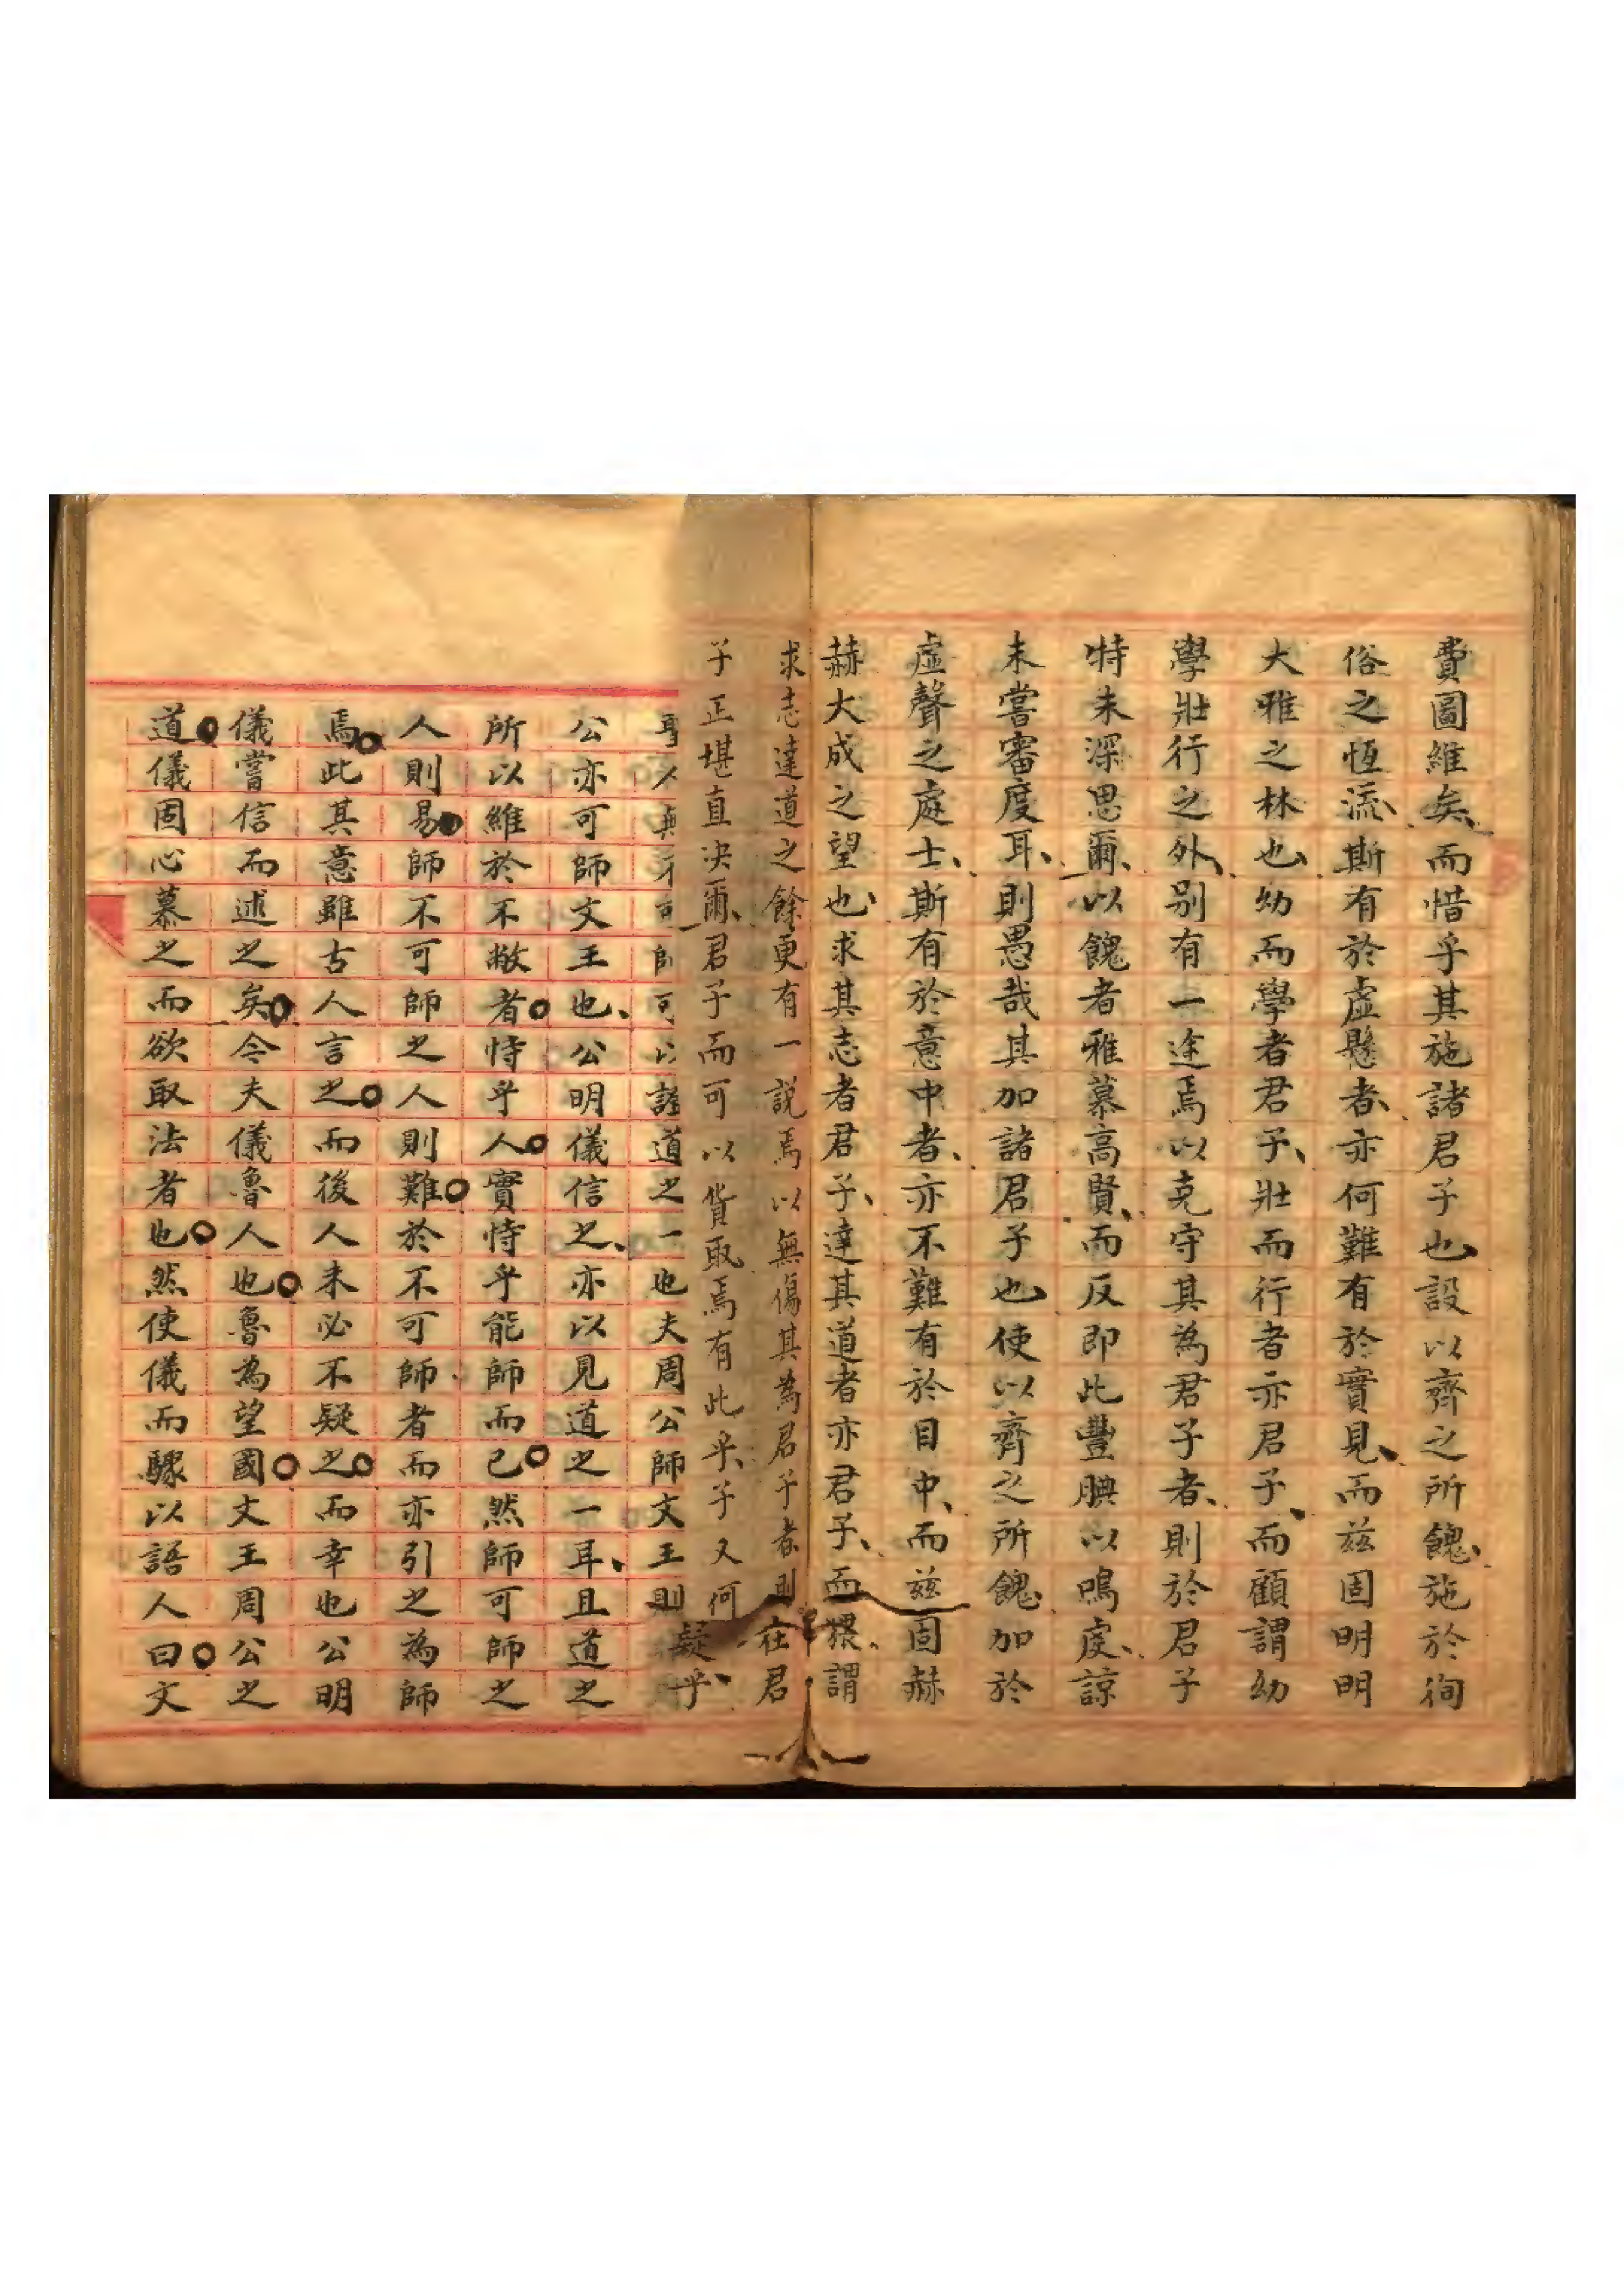 費圖維矣、而惜乎其施諸君子也、設以齊之所餽、施於徇
俗之恆流、斯有於虛懸者、亦何難有於實見、而兹固明明
大雅之林也、幼而學者君子、壯而行者亦君子、而顧謂幼
學壯行之外、別有一途焉以克守其為君子者、則於君子
特未深思爾、以餽者雅慕高賢、而反即此豐腆以鳴虔、諒
未嘗審度耳、則愚哉其加諸君子也、使以齊之所餽、加於
虛聲之處士、斯有於意中者、亦不難有於目中、而兹固赫
赫大成之望也、求其志者君子、達其道者亦君子、而猥謂
求志達道之餘更有一説焉以無傷其為君子者則在君
子正堪直決爾、君子而可以貨取焉有此乎、子又何
疑乎、
道之一也夫周公師文王則
公亦可師文王也、公明儀信之、亦以見道之一耳、且道之
所以維於不敝者恃乎人實恃乎能師而已然師可師之
人則易師不可師之人則難於不可師者而亦引之為師
焉此其意雖古人言之而後人未必不疑之而幸也公明
儀嘗信而述之矣今夫儀魯人也魯為望國文王周公之
道儀固心慕之而欲取法者也然使儀而驟以語人曰文